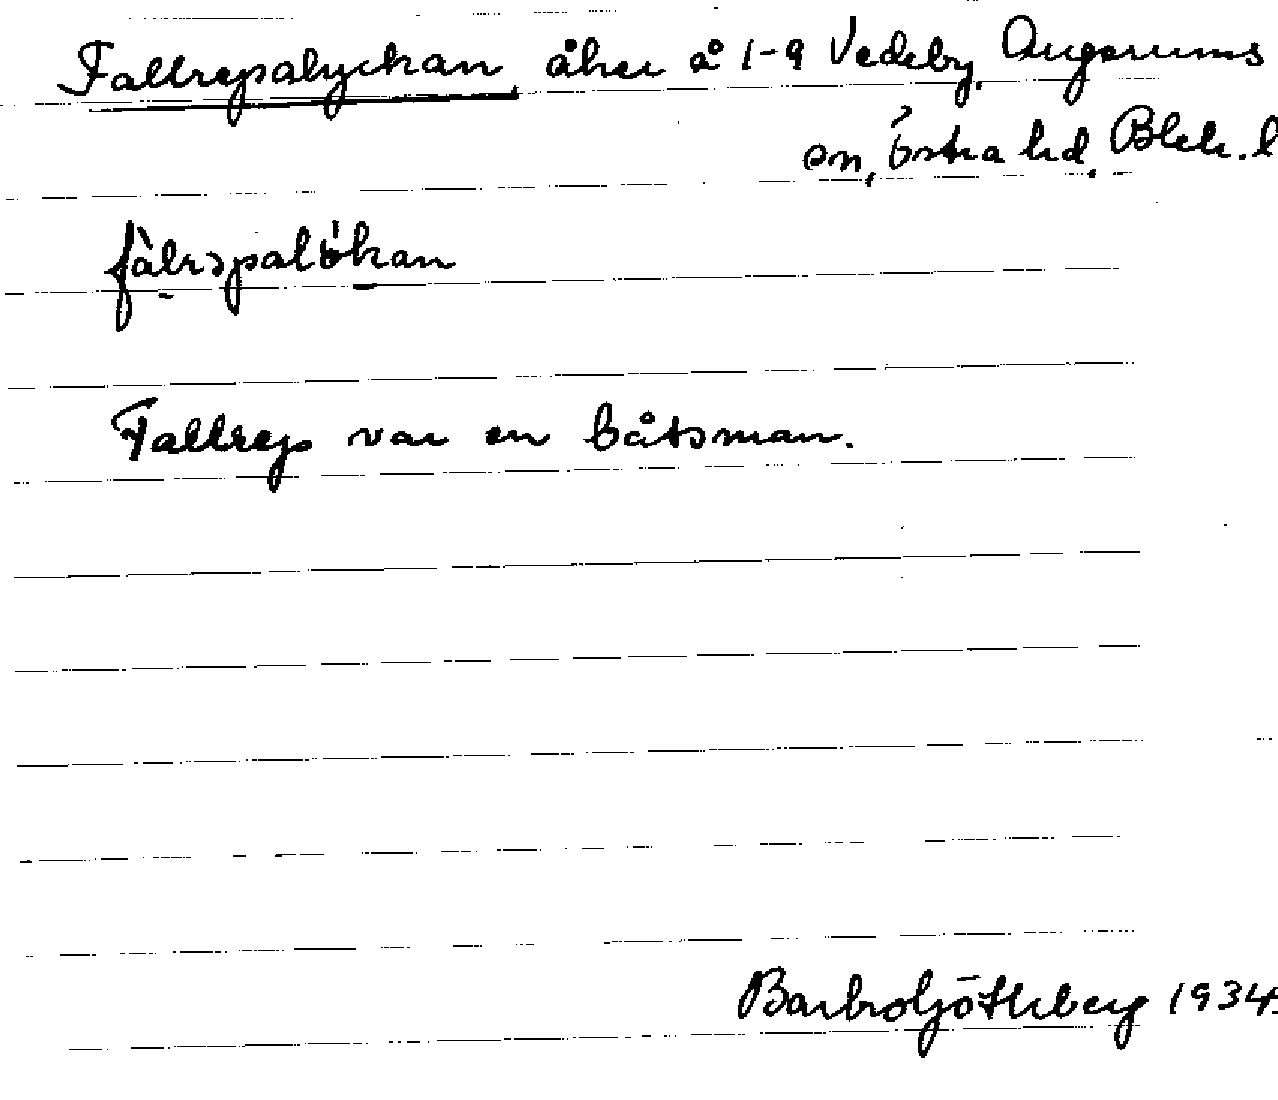 Fallrepalyckan åker å 1-9 Vedeby, Augerums
sn, Östra hd, Blek. l
fàlrəpalökan
Fallrep var en båtsman.
Barbro Götherberg 1934.